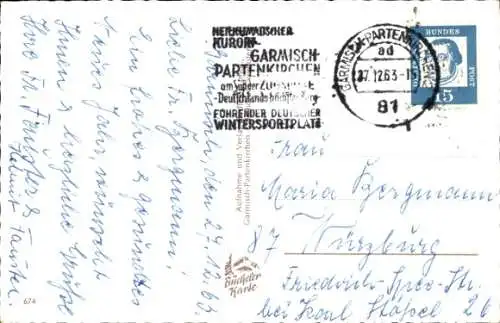 HEILKLIMATISCHER
KURORT
GARMISCH-
PARTENKIRCHEN
am Fuße der ZUGSPITZE
Deutschlands höchster Berg
FÜHRENDER DEUTSCHER
WINTERSPORTPLATZ
GARMISCH-PARTENKIRCHEN
ad
27.12.63-15
81
DEUTSCHE BUNDESPOST
15
den 27.12.63.
Liebe Frau Bergmann!
Ein frohes & gesundes
Neues Jahr, wünscht
Ihnen &
Grüße
Ihre
Aufnahme und Verlag
Garmisch-Partenkirchen
Büttelei
Karte
674
Frau
Maria Bergmann
87 Würzburg
Friedrich-Spee-Str.
bei Karl 26